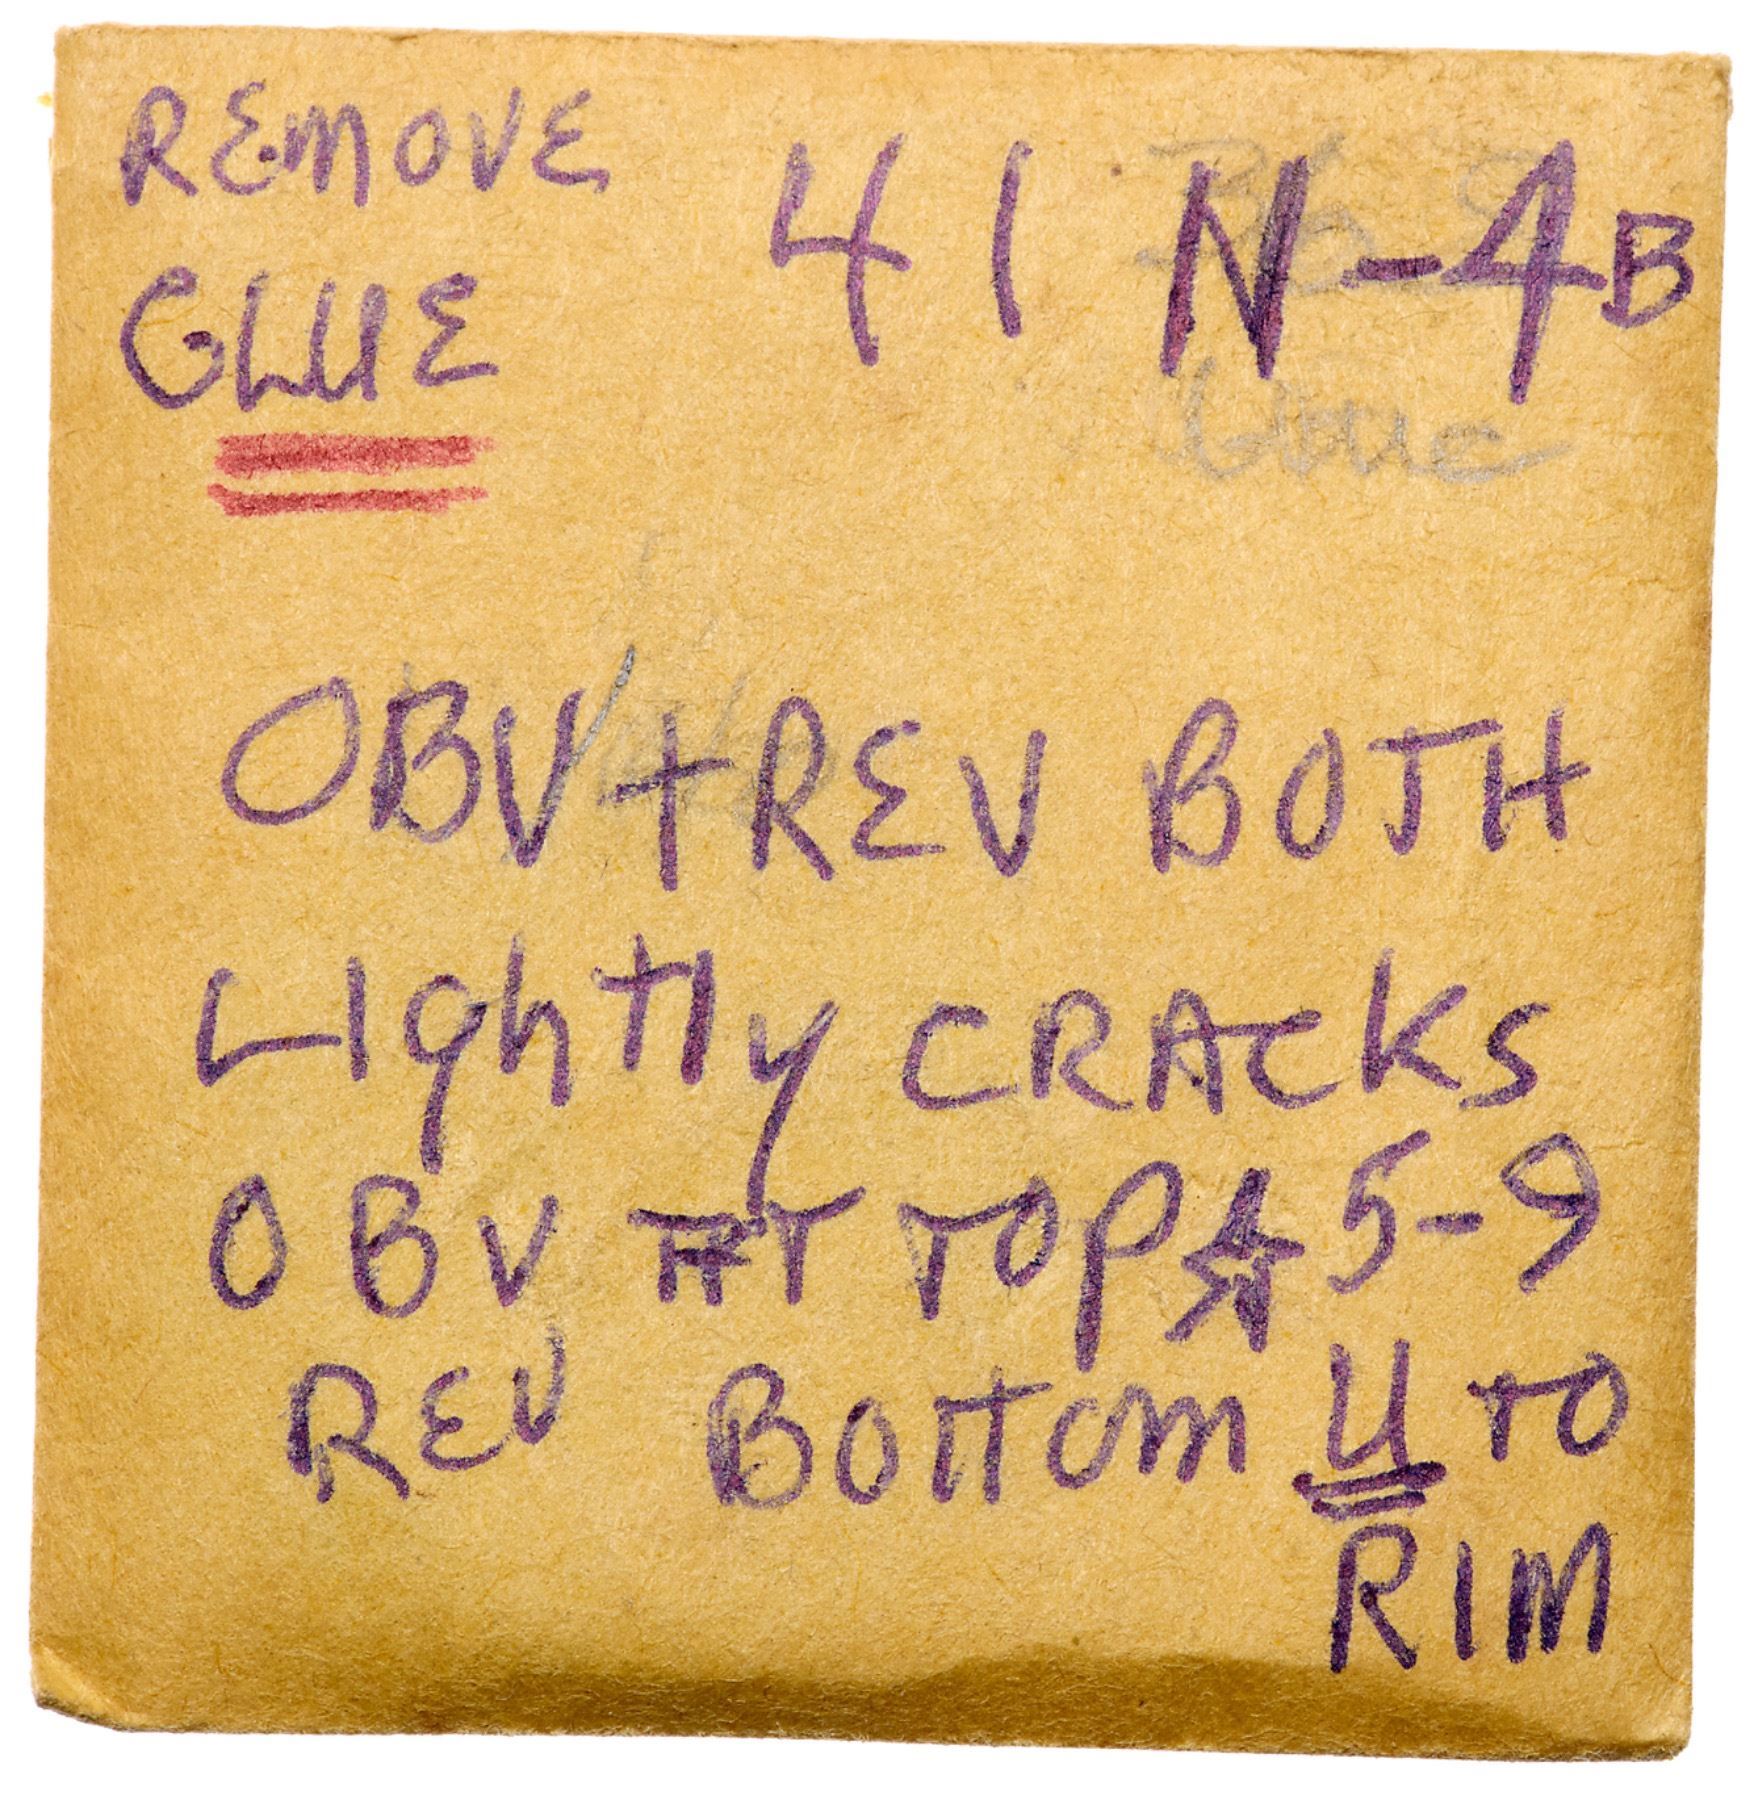 REMOVE
GLUE
41 N-4B
Glue
OBV + REV BOTH
LIghtly CRACKS
OBV AT TOP ☆ 5-9
REV BOTTOM U TO
RIM